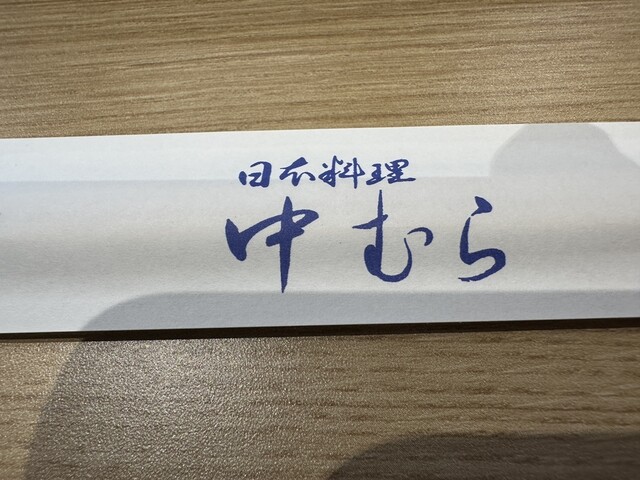 日本料理
中むら